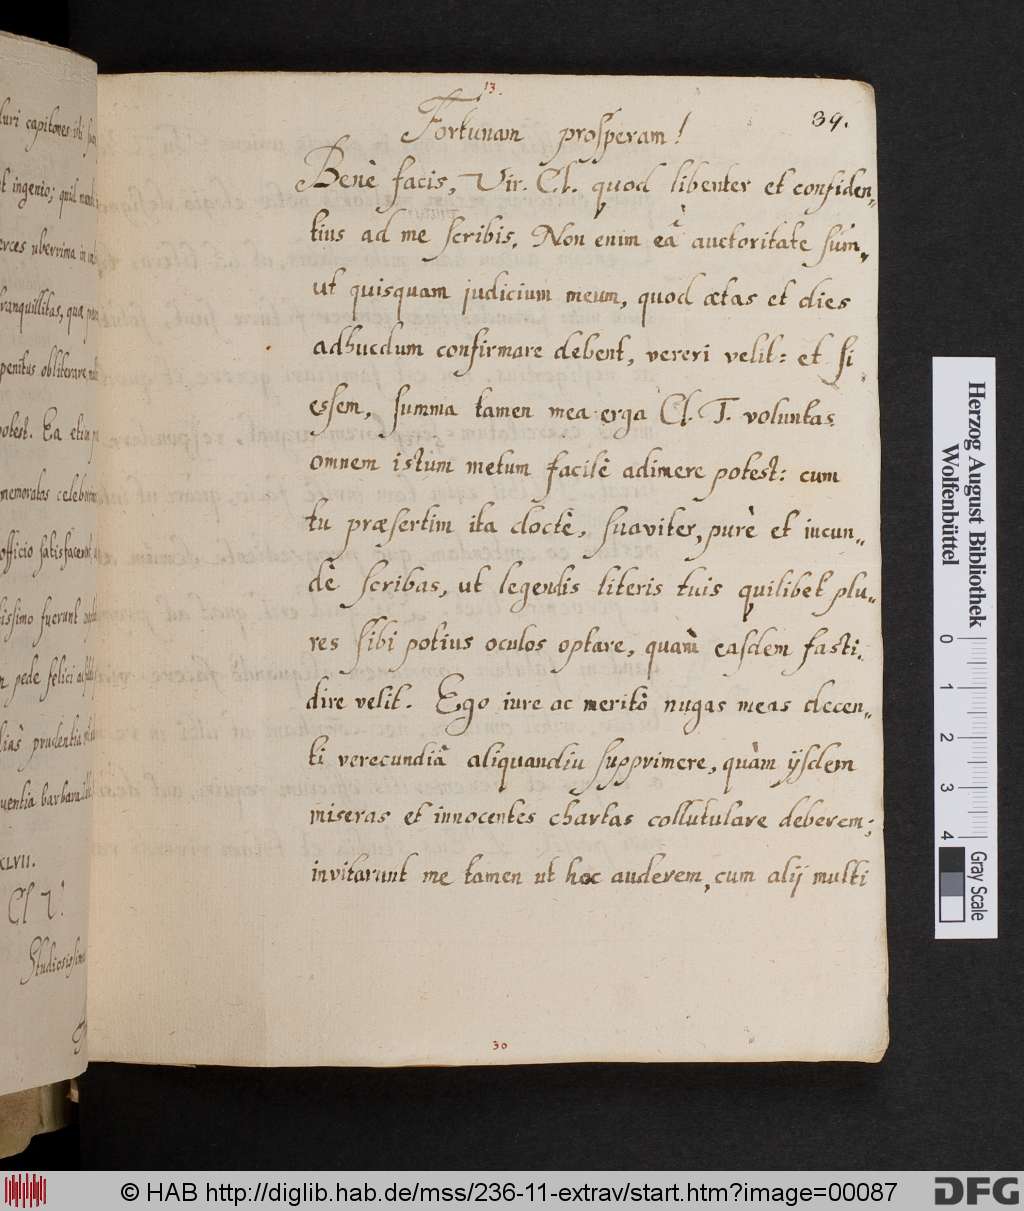 luri capitones isti
et ingenio; quid
uberrima in
tranquillitas, quæ
penitus obliterare
potest. Ea etim
memoratos
officio satisfacere
fuerunt
pede felici
prudentia
barbara
XLVII.
Cl T.
Studiosissimus
13.
39.
Fortunam prosperam!
Benè facis, Vir. Cl. quod libenter et confiden-
tius ad me scribis. Non enim eâ auctoritate sum,
ut quisquam judicium meum, quod ætas et dies
adhucdum confirmare debent, vereri velit: et si
essem, summa tamen mea erga Cl. T. voluntas
omnem istum metum facilè adimere potest: cum
tu præsertim ita doctè, suaviter, purè et iucun-
dè scribas, ut legendis literis tuis quilibet plu-
res sibi potius oculos optare, quàm easdem fasti-
dire velit. Ego iure ac meritò nugas meas decen-
ti verecundiâ aliquandiu supprimere, quàm ijsdem
miseras et innocentes chartas collutulare deberem;
invitarunt me tamen ut hoc auderem, cum alij multi
30
Herzog August Bibliothek
Wolfenbüttel
0 1 2 3 4
Gray Scale
© HAB http://diglib.hab.de/mss/236-11-extrav/start.htm?image=00087
DFG